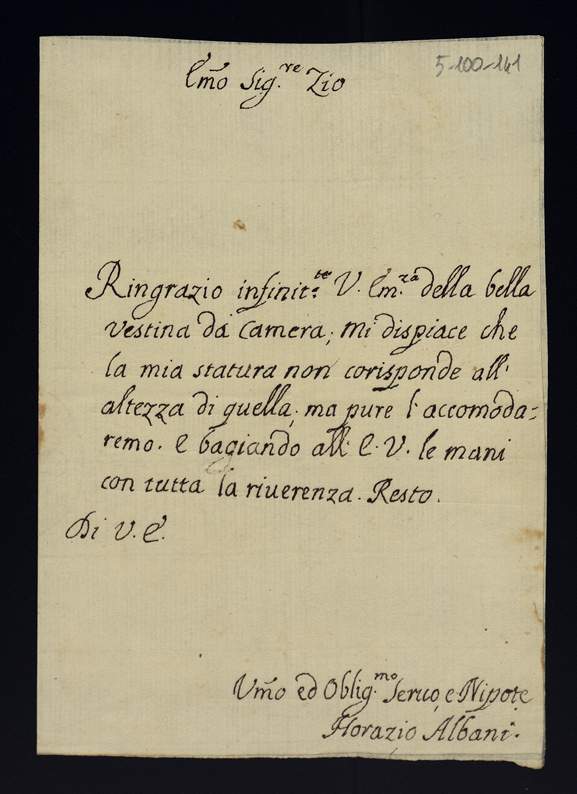 Em̃o Sig.re Zio
5-100-141
Ringrazio infinit.te V. Em.za della bella
vestina da Camera; Mi dispiace che
la mia statura non corisponde all'
altezza di quella, ma pure l'accomoda=
remo. E bagiando all' E. V. le mani
con tutta la riuerenza. Resto.
Di V. E.
Vm̃o ed Oblig.mo Seruo, e Nipote
Horazio Albani.